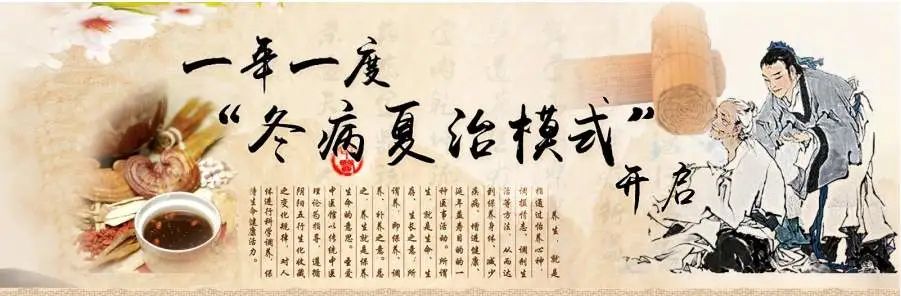 一年一度
“冬病夏治模式”
开启
养生，就是
指通过怡养心神，
调摄情志、调剂生
活等方法，从而达
到保养身体、减少
疾病、增进健康、
延年益寿目的的一
种医事活动。所谓
生，就是生命、生
存、生长之意；所
谓养，即保养、调
养、补养之意。总
之，养生就是保养
生命的意思。圣爱
中医馆以传统中医
理论为指导，遵循
阴阳五行生化收藏
之变化规律，对人
体进行科学调养，保
持生命健康活力。